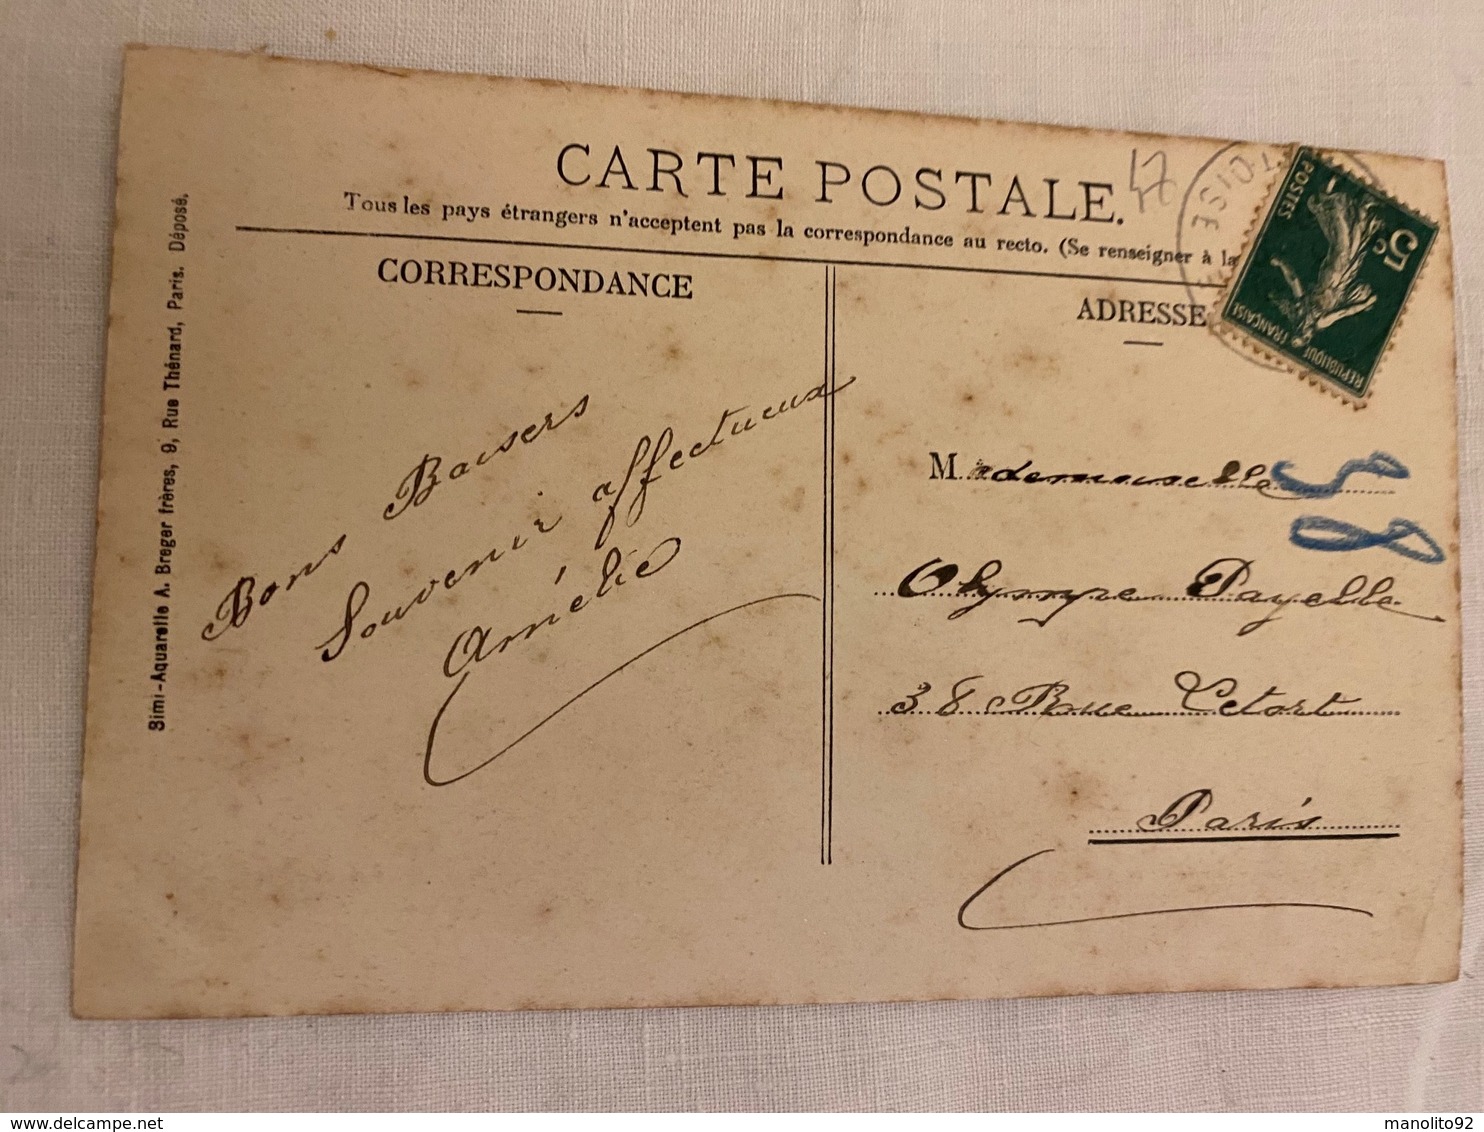 CARTE POSTALE.
Tous les pays étrangers n'acceptent pas la correspondance au recto. (Se renseigner à la
CORRESPONDANCE
ADRESSE
47
OISE
5c
POSTES
REPUBLIQUE FRANÇAISE
Simi-Aquarelle A. Breger frères, 9, Rue Thénard, Paris. Déposé.
Bons Baisers
Souvenir affectueux
Amélie
Mademoiselle
Olympe Payelle
38 Rue Letort
Paris
manolito92